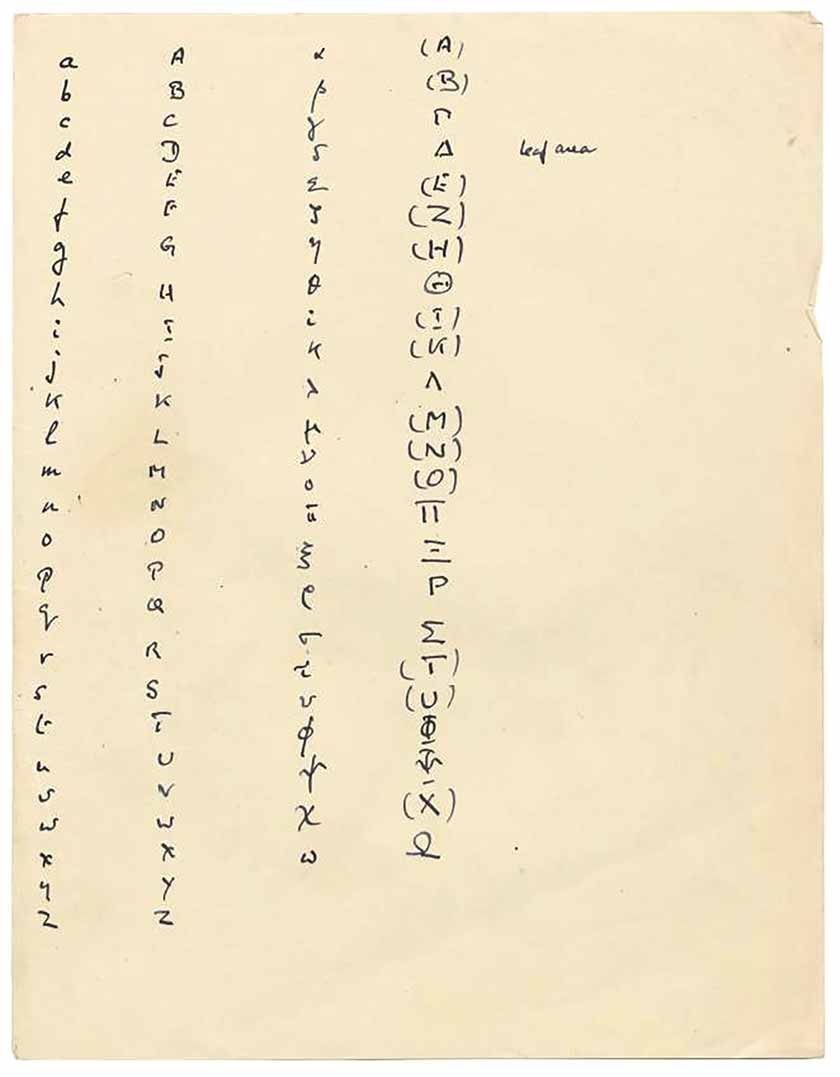 a A α (A)
b B β (B)
c C γ Γ
d D δ Δ leaf area
e E ε (E)
f F ζ (Z)
g G η (H)
h H θ Θ
i I ι (I)
j J κ (K)
k K λ Λ
l L μ (M)
m M ν (N)
n N ο (O)
o O π Π
p P ξ Ξ
q Q ρ Ρ
r R σ Σ
s S τ (T)
t T υ (U)
u U φ Φ
v V ψ Ψ
w W χ (X)
x X ω Ω
y Y
z Z